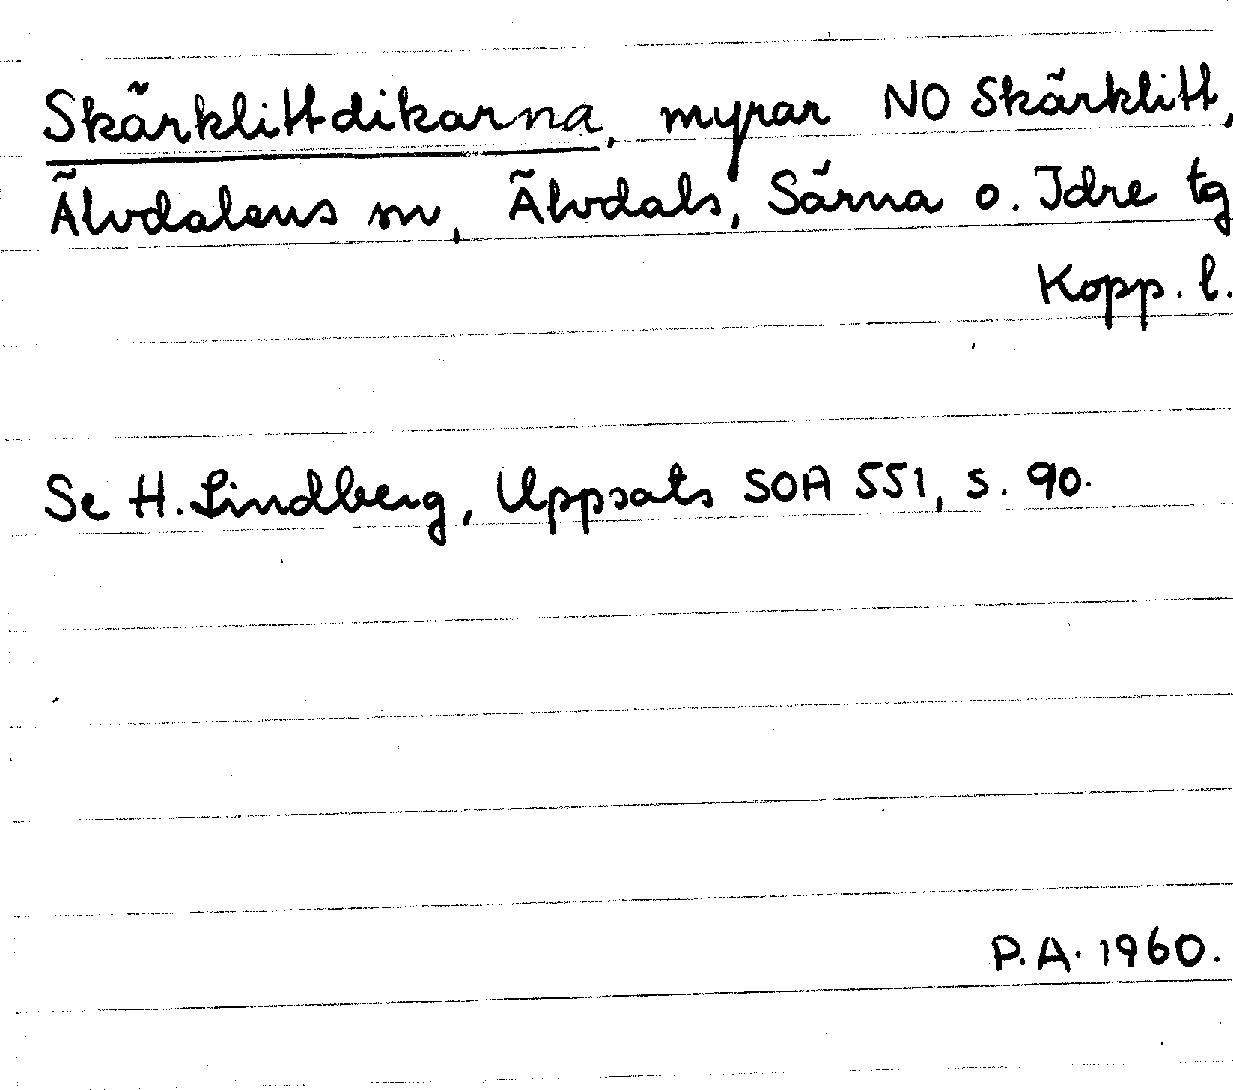 Skärklittdikarna, myrar NO Skärklitt,
Älvdalens sn, Älvdals, Särna o. Idre tg
Kopp. l.
Se H. Lindberg, Uppsats SOA 551, s. 90.
P.A. 1960.